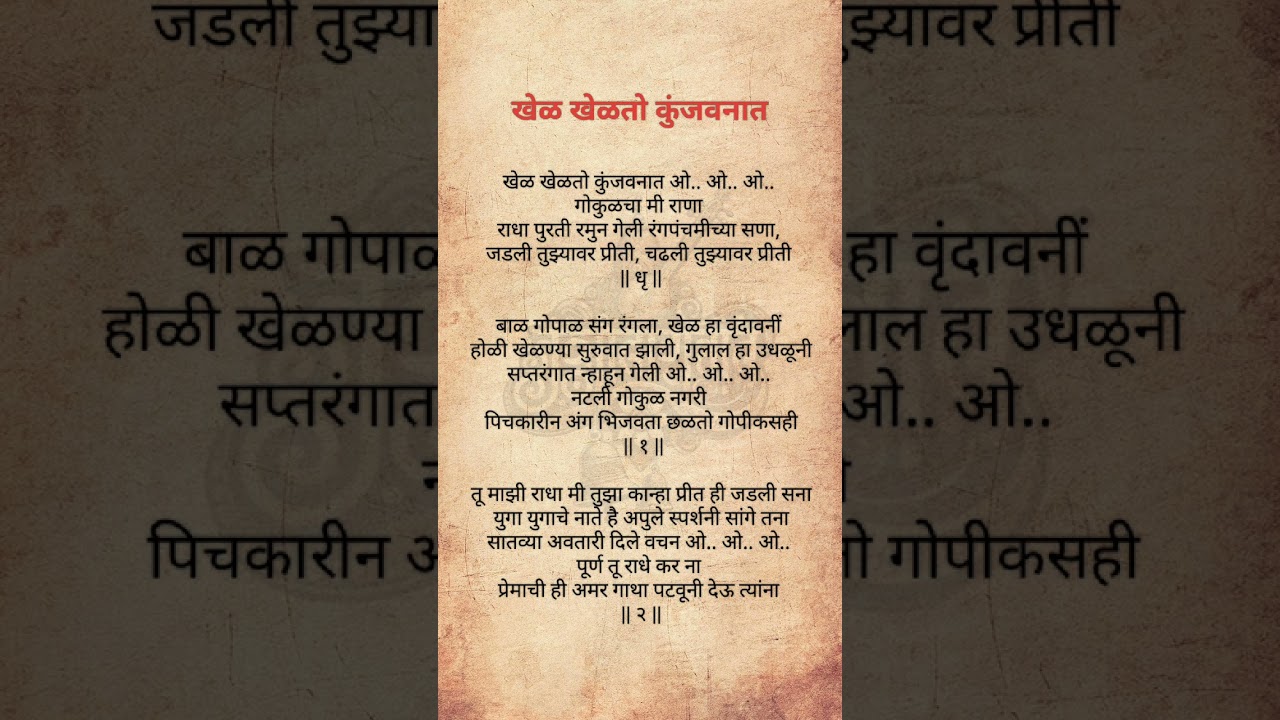 खेळ खेळतो कुंजवनात
खेळ खेळतो कुंजवनात ओ.. ओ.. ओ..
गोकुळचा मी राणा
राधा पुरती रमुन गेली रंगपंचमीच्या सणा,
जडली तुझ्यावर प्रीती, चढली तुझ्यावर प्रीती
|| धृ ||
बाळ गोपाळ संग रंगला, खेळ हा वृंदावनीं
होळी खेळण्या सुरुवात झाली, गुलाल हा उधळूनी
सप्तरंगात न्हाहून गेली ओ.. ओ.. ओ..
नटली गोकुळ नगरी
पिचकारीन अंग भिजवता छळतो गोपीकसही
|| १ ||
तू माझी राधा मी तुझा कान्हा प्रीत ही जडली सना
युगा युगाचे नाते है अपुले स्पर्शनी सांगे तना
सातव्या अवतारी दिले वचन ओ.. ओ.. ओ..
पूर्ण तू राधे कर ना
प्रेमाची ही अमर गाथा पटवूनी देऊ त्यांना
|| २ ||
जडली तुझ्या
झ्यावर प्रीती
बाळ गोपाळ
हा वृंदावनीं
होळी खेळण्या
लाल हा उधळूनी
सप्तरंगात
ओ.. ओ..
पिचकारीन
तो गोपीकसही